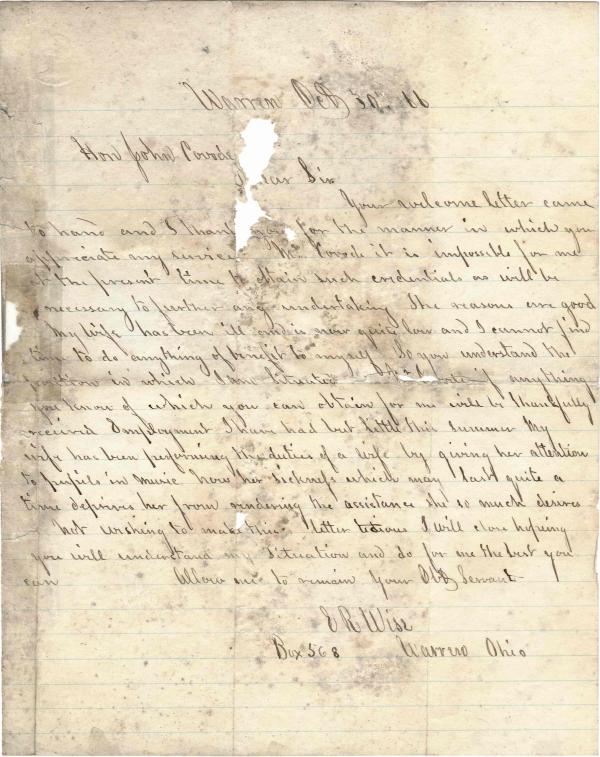 Warren Oct 30th 66
Hon John Covode
Dear Sir
Your welcome letter came
to hand and I thank you for the manner in which you
appreciate my services Mr. Covode it is impossible for me
at the present time to attain such credentials as will be
necessary to further any undertaking The reasons are good
My wife has been ill and is now quite low and I cannot find
time to do anything of benefit to myself So you understand the
position in which I am situated Mr Covode if anything
you know of which you can obtain for me will be thankfully
received Employment I have had but little this summer My
wife has been performing the duties of a wife by giving her attention
to pupils in music now her sickness which may last quite a
time deprives her from rendering the assistance she so much desires
Not wishing to make this letter tedious I will close hopeing
you will understand my situation and do for me the best you
can Allow me to remain Your Obt Servant
E R Wise
Box 568 Warren Ohio